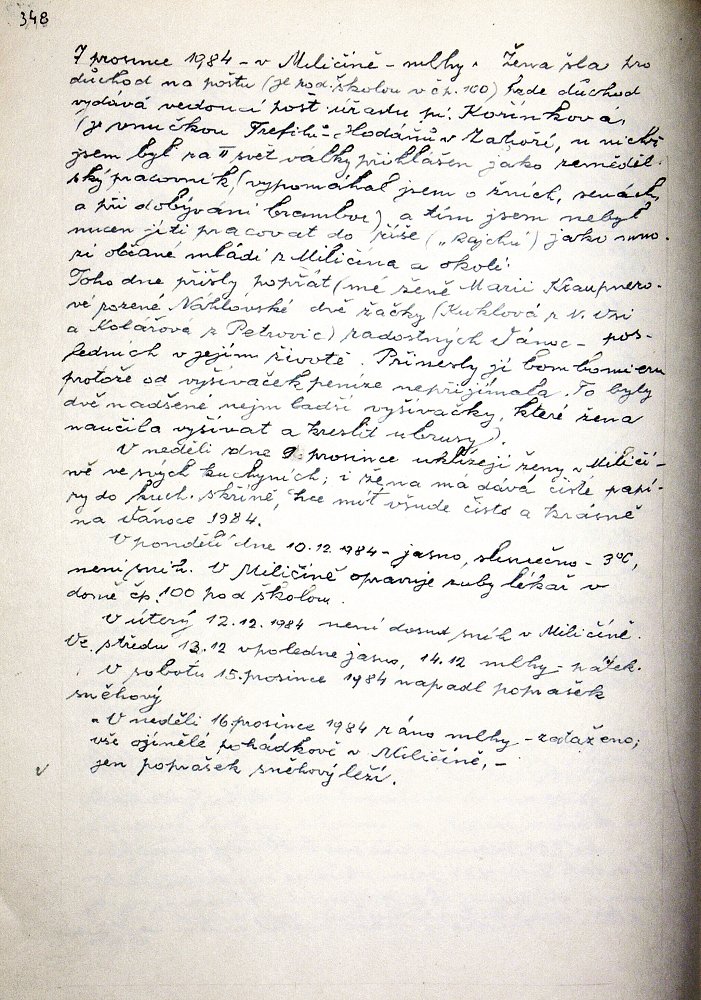 348
7 prosince 1984 - v Miličíně - mlhy. Žena šla pro
důchod na poštu (je pod školou v čp. 100) kde důchod
vydává vedoucí pošt. úřadu pí. Kořínková,
(je vnučkou Trefilů - Hodánů v Zahoří, u nichž
jsem byl za II svět války přihlášen jako zeměděl-
ský pracovník, (vypomáhal jsem o žních, senách,
a při dobývání brambor) a tím jsem nebyl
nucen jíti pracovat do říše („Rajchu") jako mno-
zí občané mládí z Miličína a okolí.
Toho dne přišly popřát (mé ženě Marii Kraupnero-
vé rozené Náhlovské dvě žačky (Kuklová z N. Vsi
a Kolářová z Petrovic) radostných Vánoc - pos-
ledních v jejím životě. Přinesly jí bombonieru
protože od vyšívaček peníze nepřijímala. To byly
dvě nadšené nejmladší vyšívačky, které žena
naučila vyšívat a kreslit ubrusy).
V neděli dne 9. prosince uklízejí ženy v Miličí-
ně ve svých kuchyních; i žena má dává čisté papí-
ry do kuch. skříně, chce mít všude čisto a krásně
na Vánoce 1984.
V pondělí dne 10.12.1984 - jasno, slunečno - 3°C,
není sníh. V Miličíně opravuje zuby lékař v
domě čp. 100 pod školou.
V úterý 12.12.1984 není dosud sníh v Miličíně.
Ve středu 13.12 vpoledne jasno, 14.12 mlhy - pátek.
V sobotu 15. prosince 1984 napadl poprašek
sněhový
V neděli 16 prosince 1984 ráno mlhy - zataženo;
vše ojíněné pohádkově v Miličíně, -
jen poprašek sněhový leží.